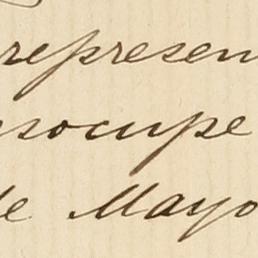 represen
socupe
de Mayo